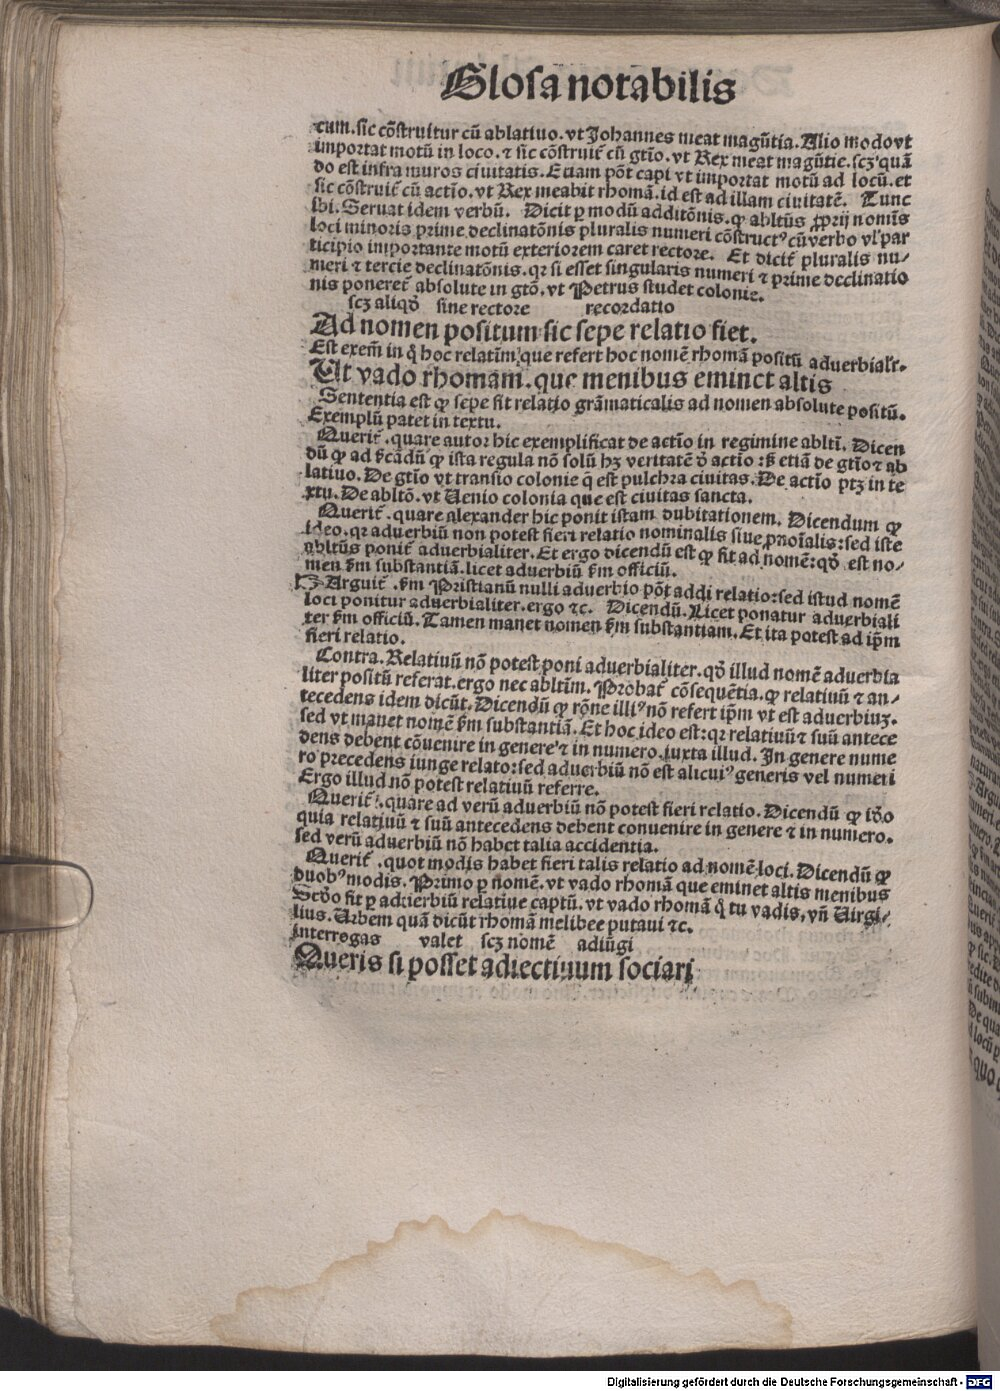 Glosa notabilis
cum. sic cõstruitur cũ ablatiuo. vt Johannes meat magũtia. Alio modo vt
importat motũ in loco. ⁊ sic cõstruit̃ cũ gtĩo. vt Rex meat magũtie. scꝫ quã
do est infra muros ciuitatis. Etiam põt capi vt importat motũ ad locũ. et
sic cõstruit̃ cũ actĩo. vt Rex meabit rhomã. id est ad illam ciuitatẽ. Tunc
ibi. Seruat idem verbũ. Dicit̃ ꝑ modũ additõnis. ꝙ abltũs ꝓprij nomĩs
loci minoris prime declinatõnis pluralis numeri cõstructꝰ cũ verbo vl' par
ticipio importante motũ exteriorem caret rectore. Et dicit̃ pluralis nu-
meri ⁊ tercie declinatõnis. qꝛ si esset singularis numeri ⁊ prime declinatio
nis poneret̃ absolute in gtõ. vt Petrus studet colonie.
scꝫ aliqđ sine rectore recordatio
Ad nomen positum sic sepe relatio fiet.
Est exem̃ in q̃ hoc relatĩm que refert hoc nomẽ rhomã positũ aduerbialr̃.
Ut vado rhomam. que menibus eminet altis
Sententia est ꝙ sepe fit relatio grãmaticalis ad nomen absolute positũ.
Exemplũ patet in textu.
Querit̃. quare autor hic exemplificat de actĩo in regimine abltĩ. Dicen
dũ ꝙ ad ñcãdũ ꝙ ista regula nõ solũ hꝫ veritatẽ ð actĩo: sꝫ etiã de gtĩo ⁊ ab
latiuo. De gtĩo vt transio colonie q̃ est pulchra ciuitas. De actĩo ptꝫ in te
xtu. De abltõ. vt Uenio colonia que est ciuitas sancta.
Querit̃. quare alexander hic ponit istam dubitationem. Dicendum ꝙ
ideo. qꝛ aduerbiũ non potest fieri relatio nominalis siue ꝓnoĩalis: sed iste
abltũs ponit̃ aduerbialiter. Et ergo dicendũ est ꝙ fit ad nomẽ: qđ est no-
men ẜm substantiã. licet aduerbiũ ẜm officiũ.
Arguit̃. ẜm Pristianũ nulli aduerbio põt addi relatio: sed istud nomẽ
loci ponitur aduerbialiter. ergo ⁊c. Dicendũ. Licet ponatur aduerbiali
ter ẜm officiũ. Tamen manet nomen ẜm substantiam. Et ita potest ad ip̃m
fieri relatio.
Contra. Relatiuũ nõ potest poni aduerbialiter. qđ illud nomẽ aduerbia
liter positũ referat. ergo nec abltĩm. Probat̃ cõsequẽtia. ꝙ relatiuũ ⁊ an-
tecedens idem dicũt. Dicendũ ꝙ rõne illiꝰ nõ refert ip̃m vt est aduerbiuꝫ.
sed vt manet nomẽ ẜm substantiã. Et hoc ideo est: qꝛ relatiuũ ⁊ suũ antece
dens debent cõuenire in genere ⁊ in numero. iuxta illud. In genere nume
ro precedens iunge relato: sed aduerbiũ nõ est alicuiꝰ generis vel numeri
Ergo illud nõ potest relatiuũ referre.
Querit̃. quare ad verũ aduerbiũ nõ potest fieri relatio. Dicendũ ꝙ iđo
quia relatiuũ ⁊ suũ antecedens debent conuenire in genere ⁊ in numero.
sed verũ aduerbiũ nõ habet talia accidentia.
Querit̃. quot modis habet fieri talis relatio ad nomẽ loci. Dicendũ ꝙ
duobꝰ modis. Primo ꝑ nomẽ. vt vado rhomã que eminet altis menibus
Scđo fit ꝑ aduerbiũ relatiue captũ. vt vado rhomã q̃ tu vadis, vñ Uirgi-
lius. Urbem quã dicũt rhomã melibee putaui ⁊c.
interrogas valet scꝫ nomẽ adiũgi
Queris si posset adiectiuum sociari
Digitalisierung gefördert durch die Deutsche Forschungsgemeinschaft - DFG